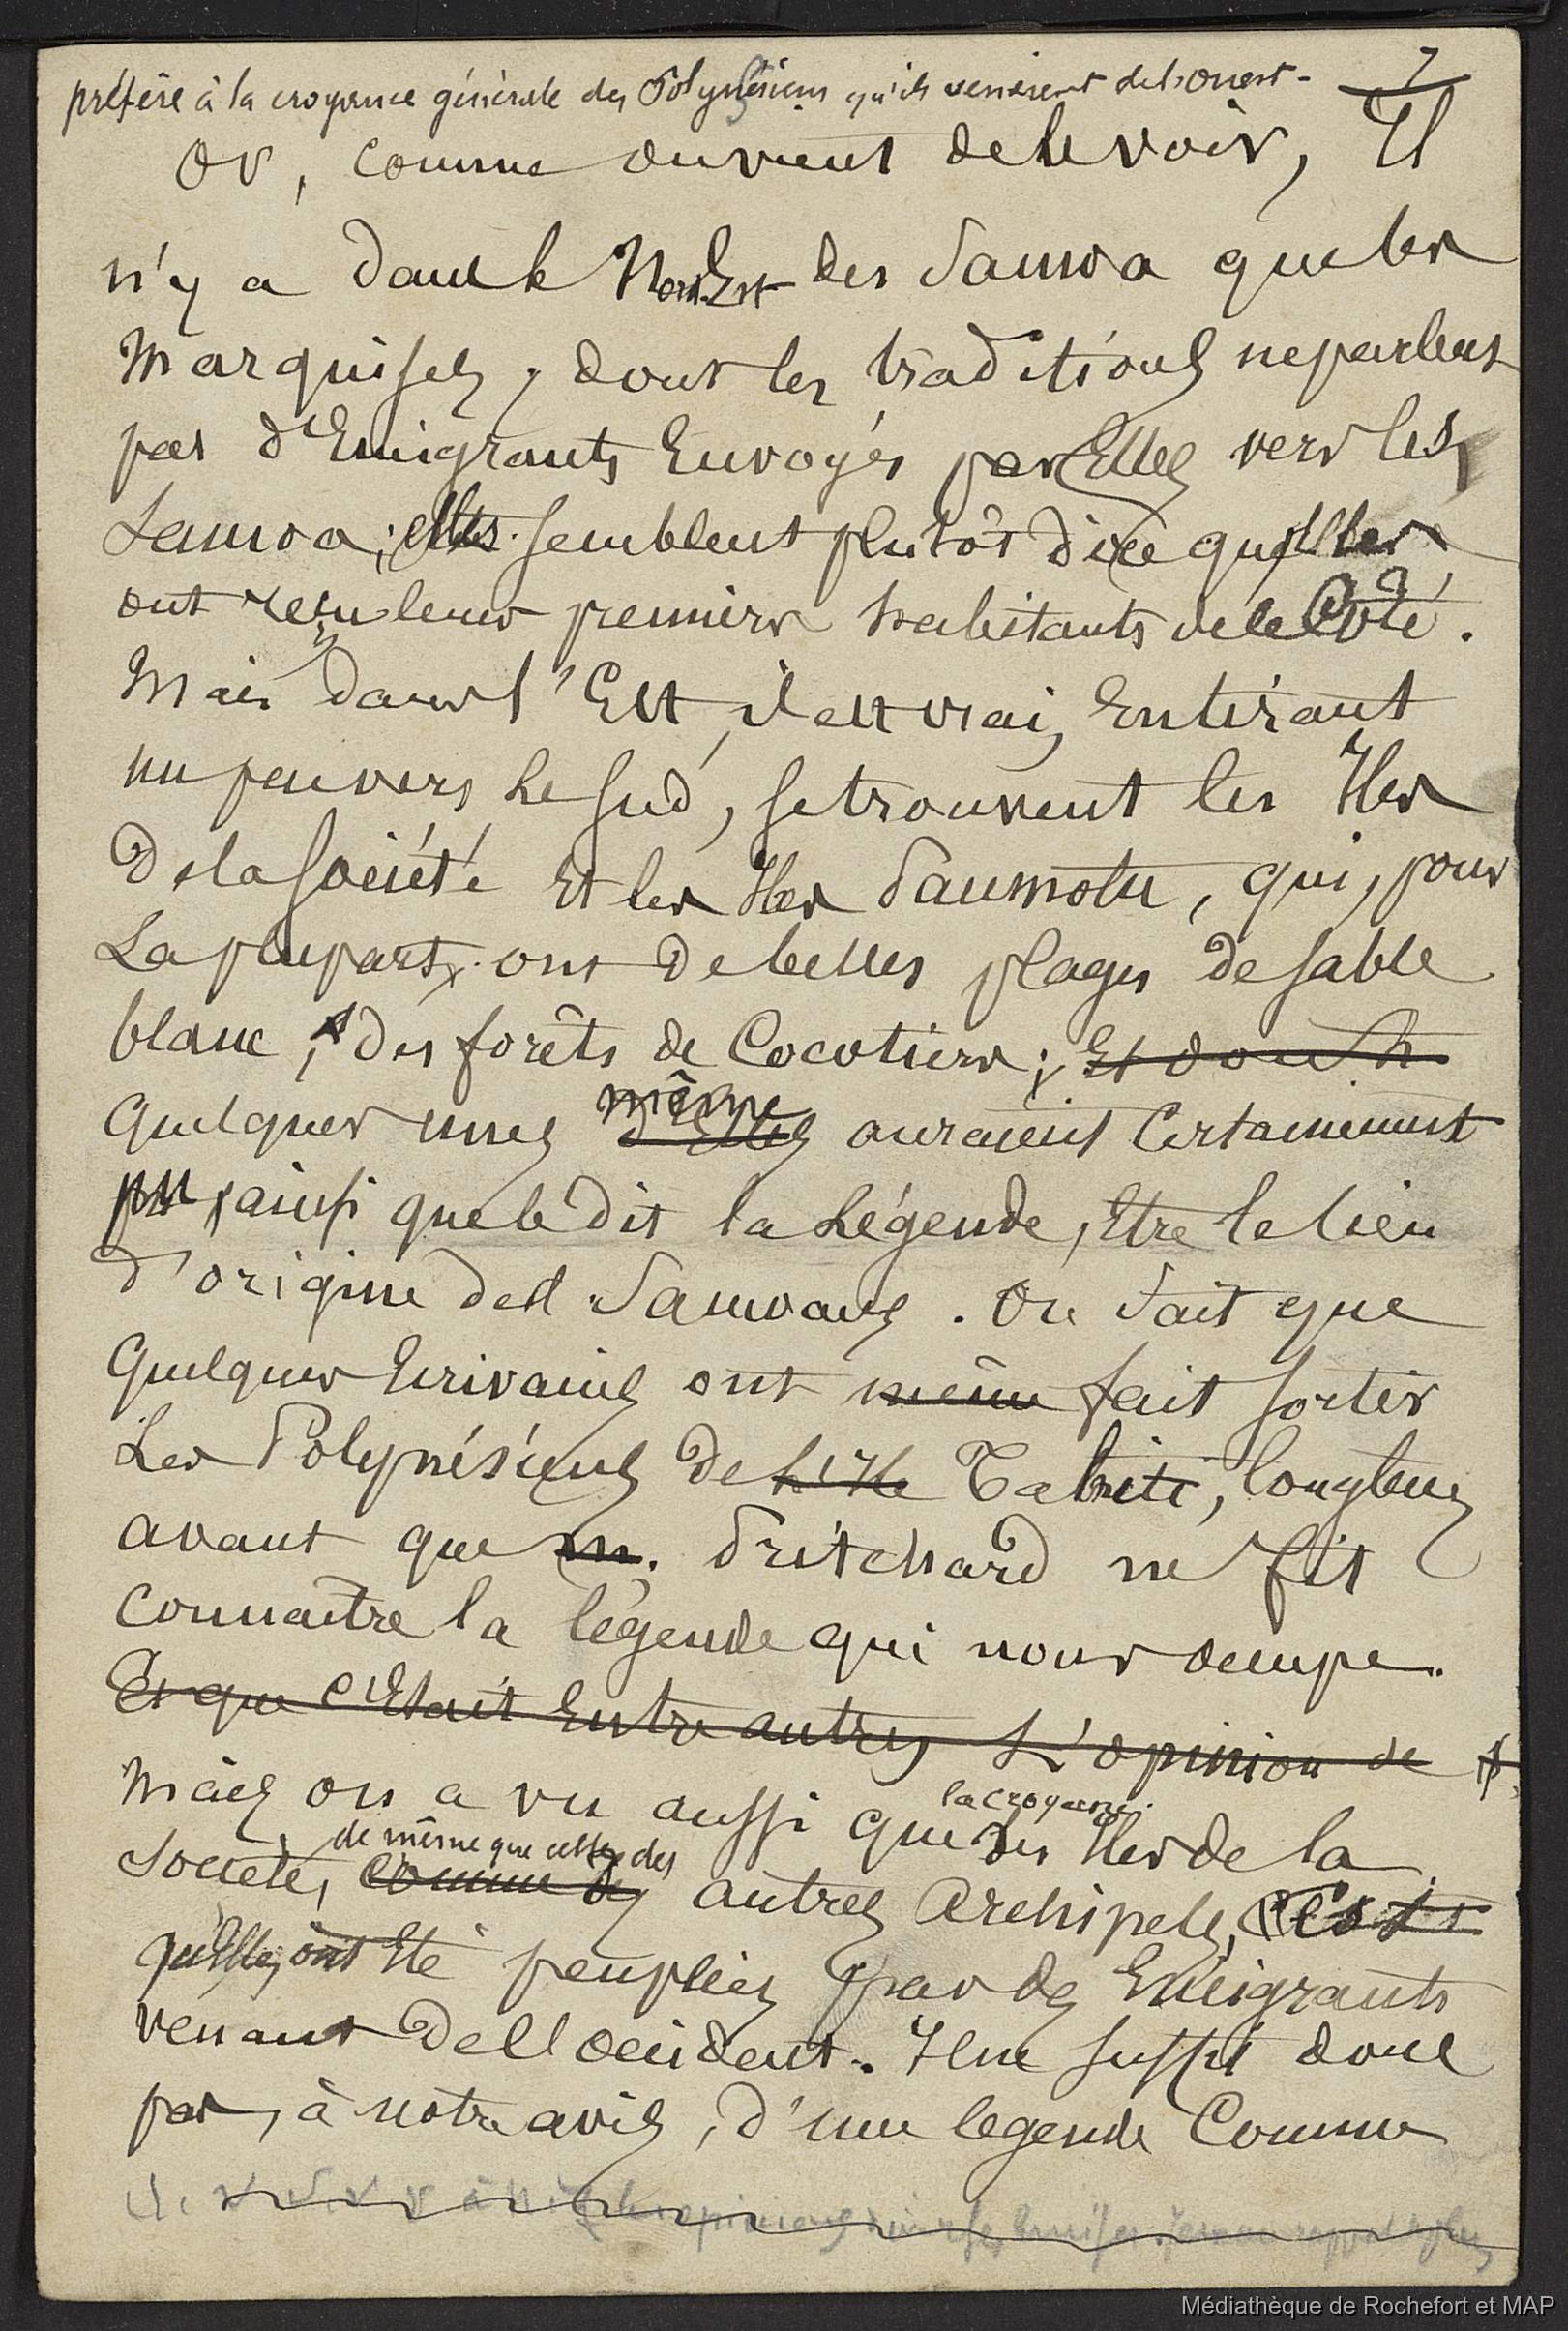 7
préfère à la croyance générale des Polynésiens qu'ils venaient de l'ouest -
Or, comme on vient de le voir, Il
n'y a dans le Nord-Est des Samoa que les
Marquises, dont les traditions ne parlent
pas d'Emigrants Envoyés par Elles vers les
Samoa; elles semblent plutôt dire qu'Elles
ont reçu leurs premiers habitants de ce Côté.
Mais dans l'Est, il est vrai, En tirant
un peu vers le Sud, se trouvent les Iles
de la Société Et les Iles Paumotu, qui, pour
La plupart, ont de belles plages de sable
blanc, des forêts de Cocotiers; Et dont
même
Quelques unes d'Elles auraient Certainement
pu, ainsi que le dit la Légende, Etre le lieu
d'origine des Samoans. On Sait que
Quelques Ecrivains ont même fait sortir
Les Polynésiens de L'Ile Tahiti, longtems
avant que M. Pritchard ne fit
connaitre la légende qui nous occupe.
Et que c'Etait Entre autres L'opinion de
la croyance
Mais on a vu aussi que des Iles de la
de même que celle des
Société, comme des autres Archipels, c'Est
qu'Elles ont Eté peuplées par des Emigrants
venant de l'occident. Il ne suffit donc
pas, à notre avis, d'une légende Comme
Médiathèque de Rochefort et MAP